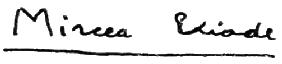 Mircea Eliade